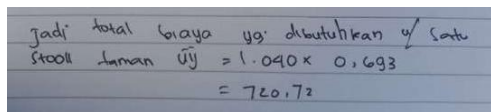 Jadi total biaya yg. dibutuhkan u/ satu
stooll taman ŪȲ = 1.040 x 0,693
= 720,72